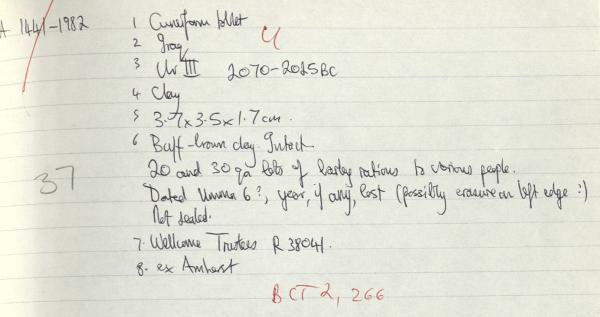 A 1441-1982
1 Cuneiform tablet
2 Iraq
3 Ur III 2070-2025BC
4 Clay
5 3.7x3.5x1.7cm.
6 Buff-brown clay. Intact
20 and 30 qa lots of barley rations to various people.
37
Dated Umma 6?, year, if any, lost (possibly erasure on left edge:)
Not sealed.
7. Wellcome Trustees R 38041.
8. ex Amherst
BCT 2, 266